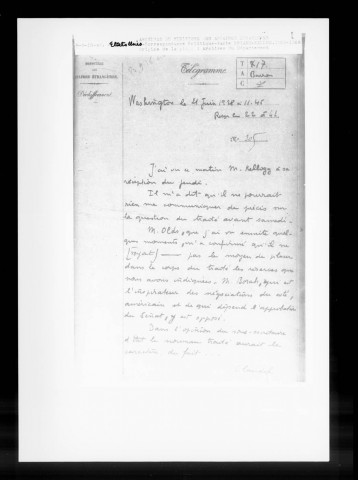 Etats Unis
MINISTÈRE
DES
AFFAIRES ÉTRANGÈRES
Déchiffrement
Télégramme
T
A
C
Washington le 21 Juin 1928 à 11.45
Reçu le 22 à
n° 305
J'ai vu ce matin M. Kellogg à sa
réception du jeudi.
Il m'a dit qu'il ne pourrait
rien me communiquer de précis sur
la question du traité avant samedi.
M. Olds, que j'ai vu ensuite quel-
ques moments, m'a confirmé qu'il ne
par les moyens de placer
dans le corps du traité les réserves que
nous avons indiquées. M. Borah, qui est
l'inspirateur des négociations du côté
américain et de qui dépend l'approbation
du Sénat, y est opposé.
Dans l'opinion du sous-secrétaire
d'Etat le nouveau traité aurait le
caractère du fait